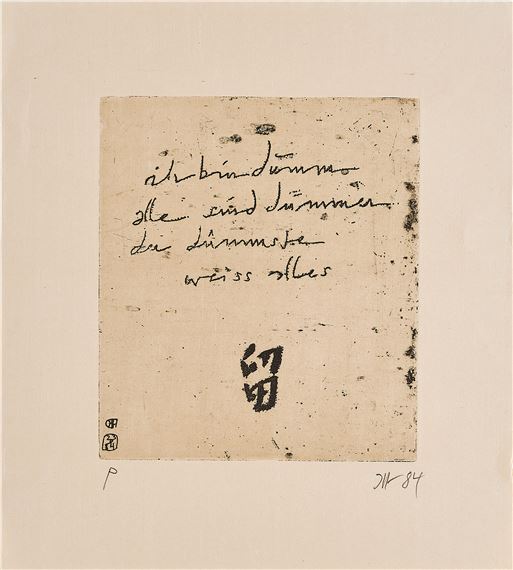 ich bin dümm
alle sind dümmer
der dümmste
weiss alles
留
P
84